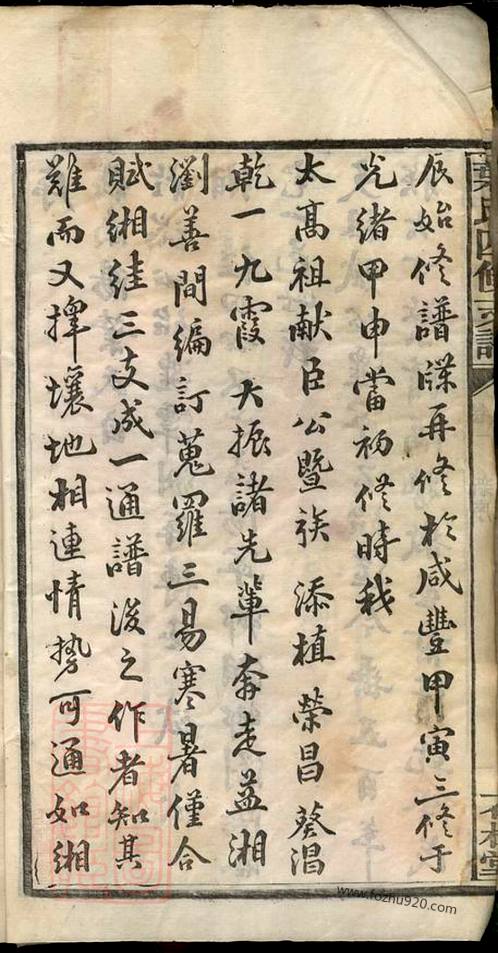 辰始修譜牒再修於咸豐甲寅三修于
光緒甲申當初修時我
太高祖献臣公暨族添植榮昌葵淐
乾一九霞大振諸先輩奔走益湘
瀏善間編訂蒐羅三易寒暑僅合
賦緗絓三支成一通譜後之作者知其
難而又擇壤地相連情勢可通如緗
葉氏四修支譜
www.fozhu920.com